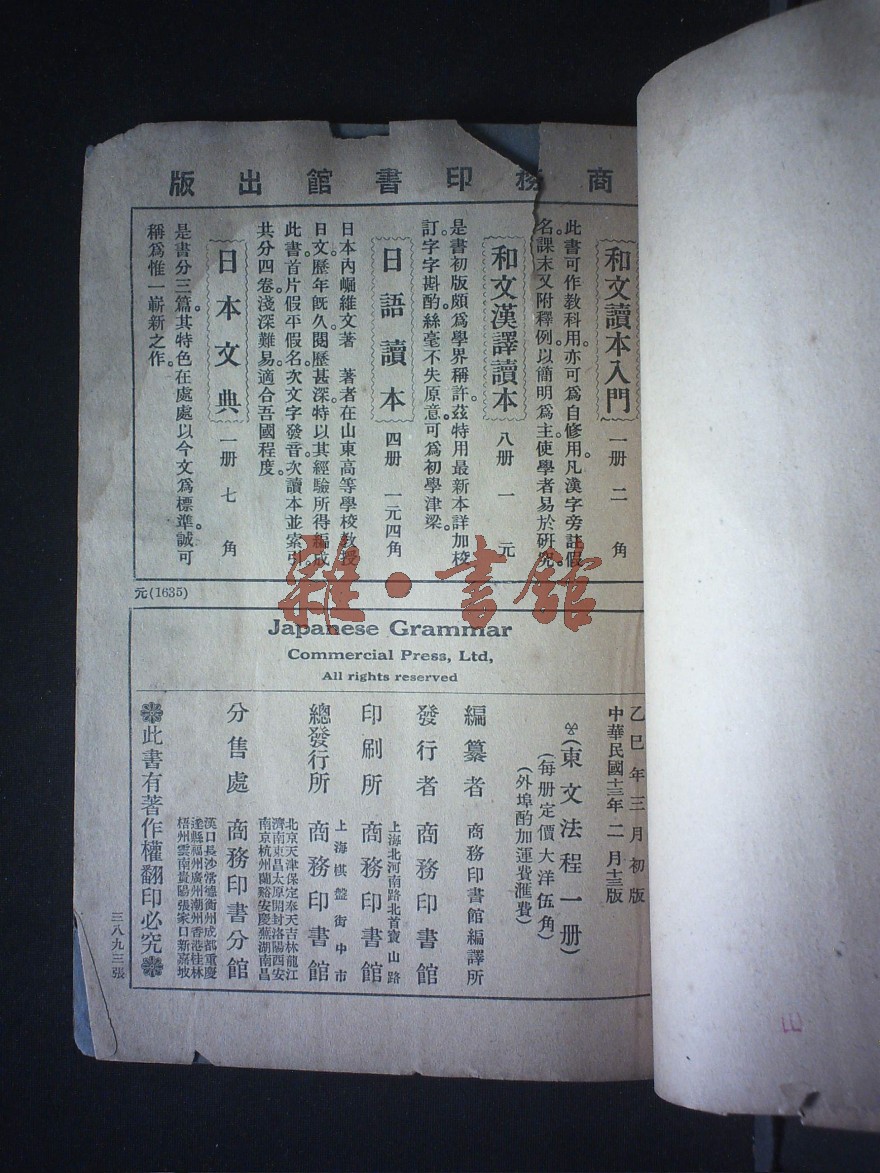 商務印書館出版
和文讀本入門 一册 二角
此書可作教科用。亦可爲自修用。凡漢字旁註假
名。課末又附釋例。以簡明爲主。使學者易於研究。
和文漢譯讀本 八册 一元
是書初版頗爲學界稱許。茲特用最新本詳加校
訂。字字斟酌。絲毫不失原意。可爲初學津梁。
日語讀本 四册 一元四角
日本內堀維文著 著者在山東高等學校教授
日文。歷年既久。閱歷甚深。特以其經驗所得編成
此書。首片假平假名。次文字發音。次讀本並索引。
共分四卷。淺深難易。適合吾國程度。
日本文典 一册 七角
是書分三篇。其特色在處處以今文爲標準。誠可
稱爲惟一嶄新之作。
元(1635)
Japanese Grammar
Commercial Press, Ltd,
All rights reserved
乙巳年三月初版
中華民國十三年二月十三版
(東文法程一册)
(每册定價大洋伍角)
(外埠酌加運費滙費)
編纂者 商務印書館編譯所
發行者 商務印書館
上海北河南路北首寶山路
印刷所 商務印書館
上海棋盤街中市
總發行所 商務印書館
北京天津保定奉天吉林龍江
濟南東昌太原開封洛陽西安
南京杭州蘭谿安慶蕪湖南昌
分售處 商務印書分館
漢口長沙常德衡州成都重慶
達縣福州廣州潮州香港桂林
梧州雲南貴陽張家口新嘉坡
此書有著作權翻印必究
三八九三張
雜·書館